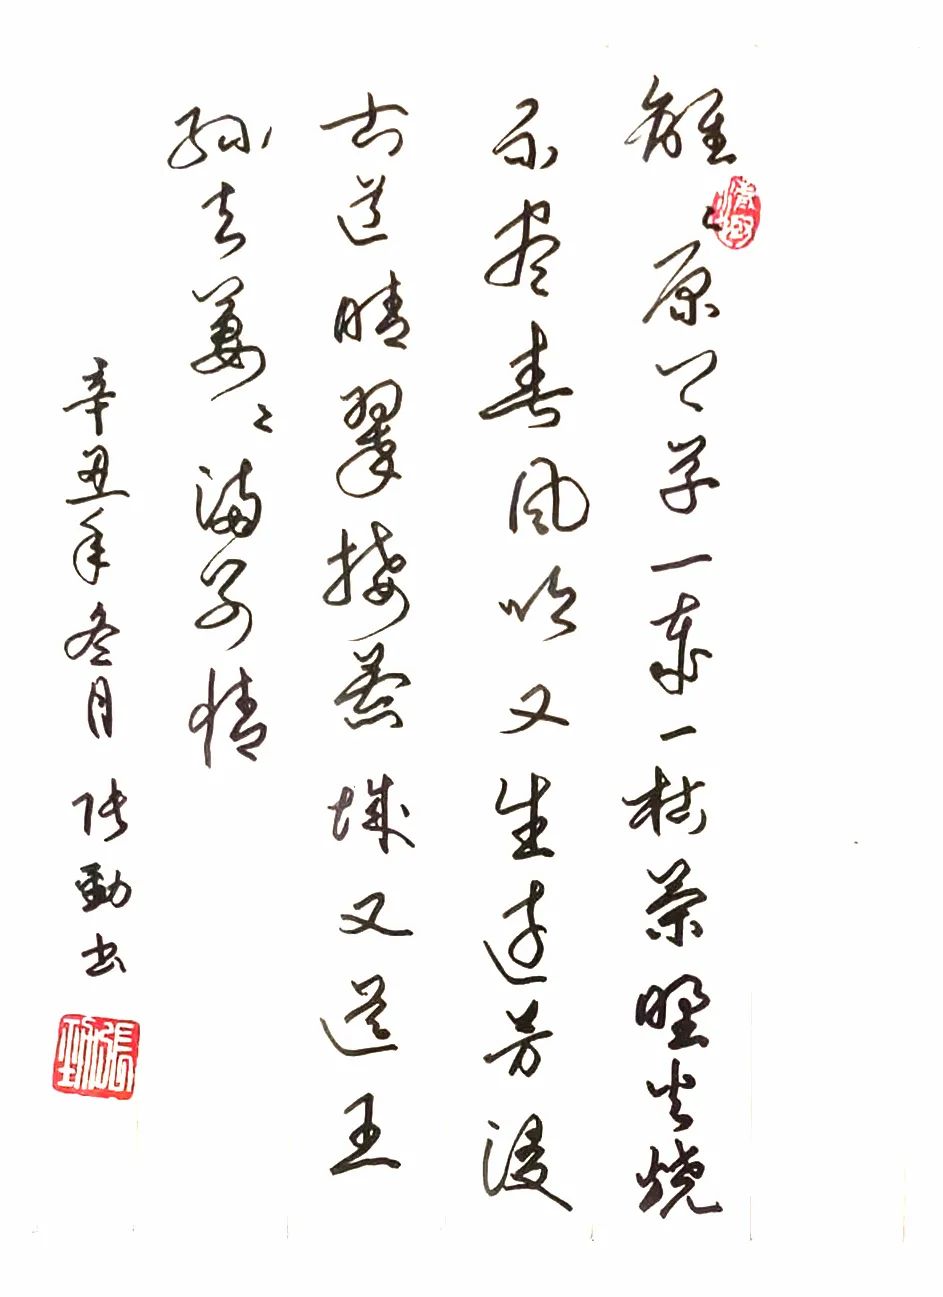 離〻原上草一歲一枯榮野火燒
不盡春風吹又生遠芳浸
古道晴翠接荒城又送王
孫去萋〻滿別情
辛丑年冬月張勁書
張勁